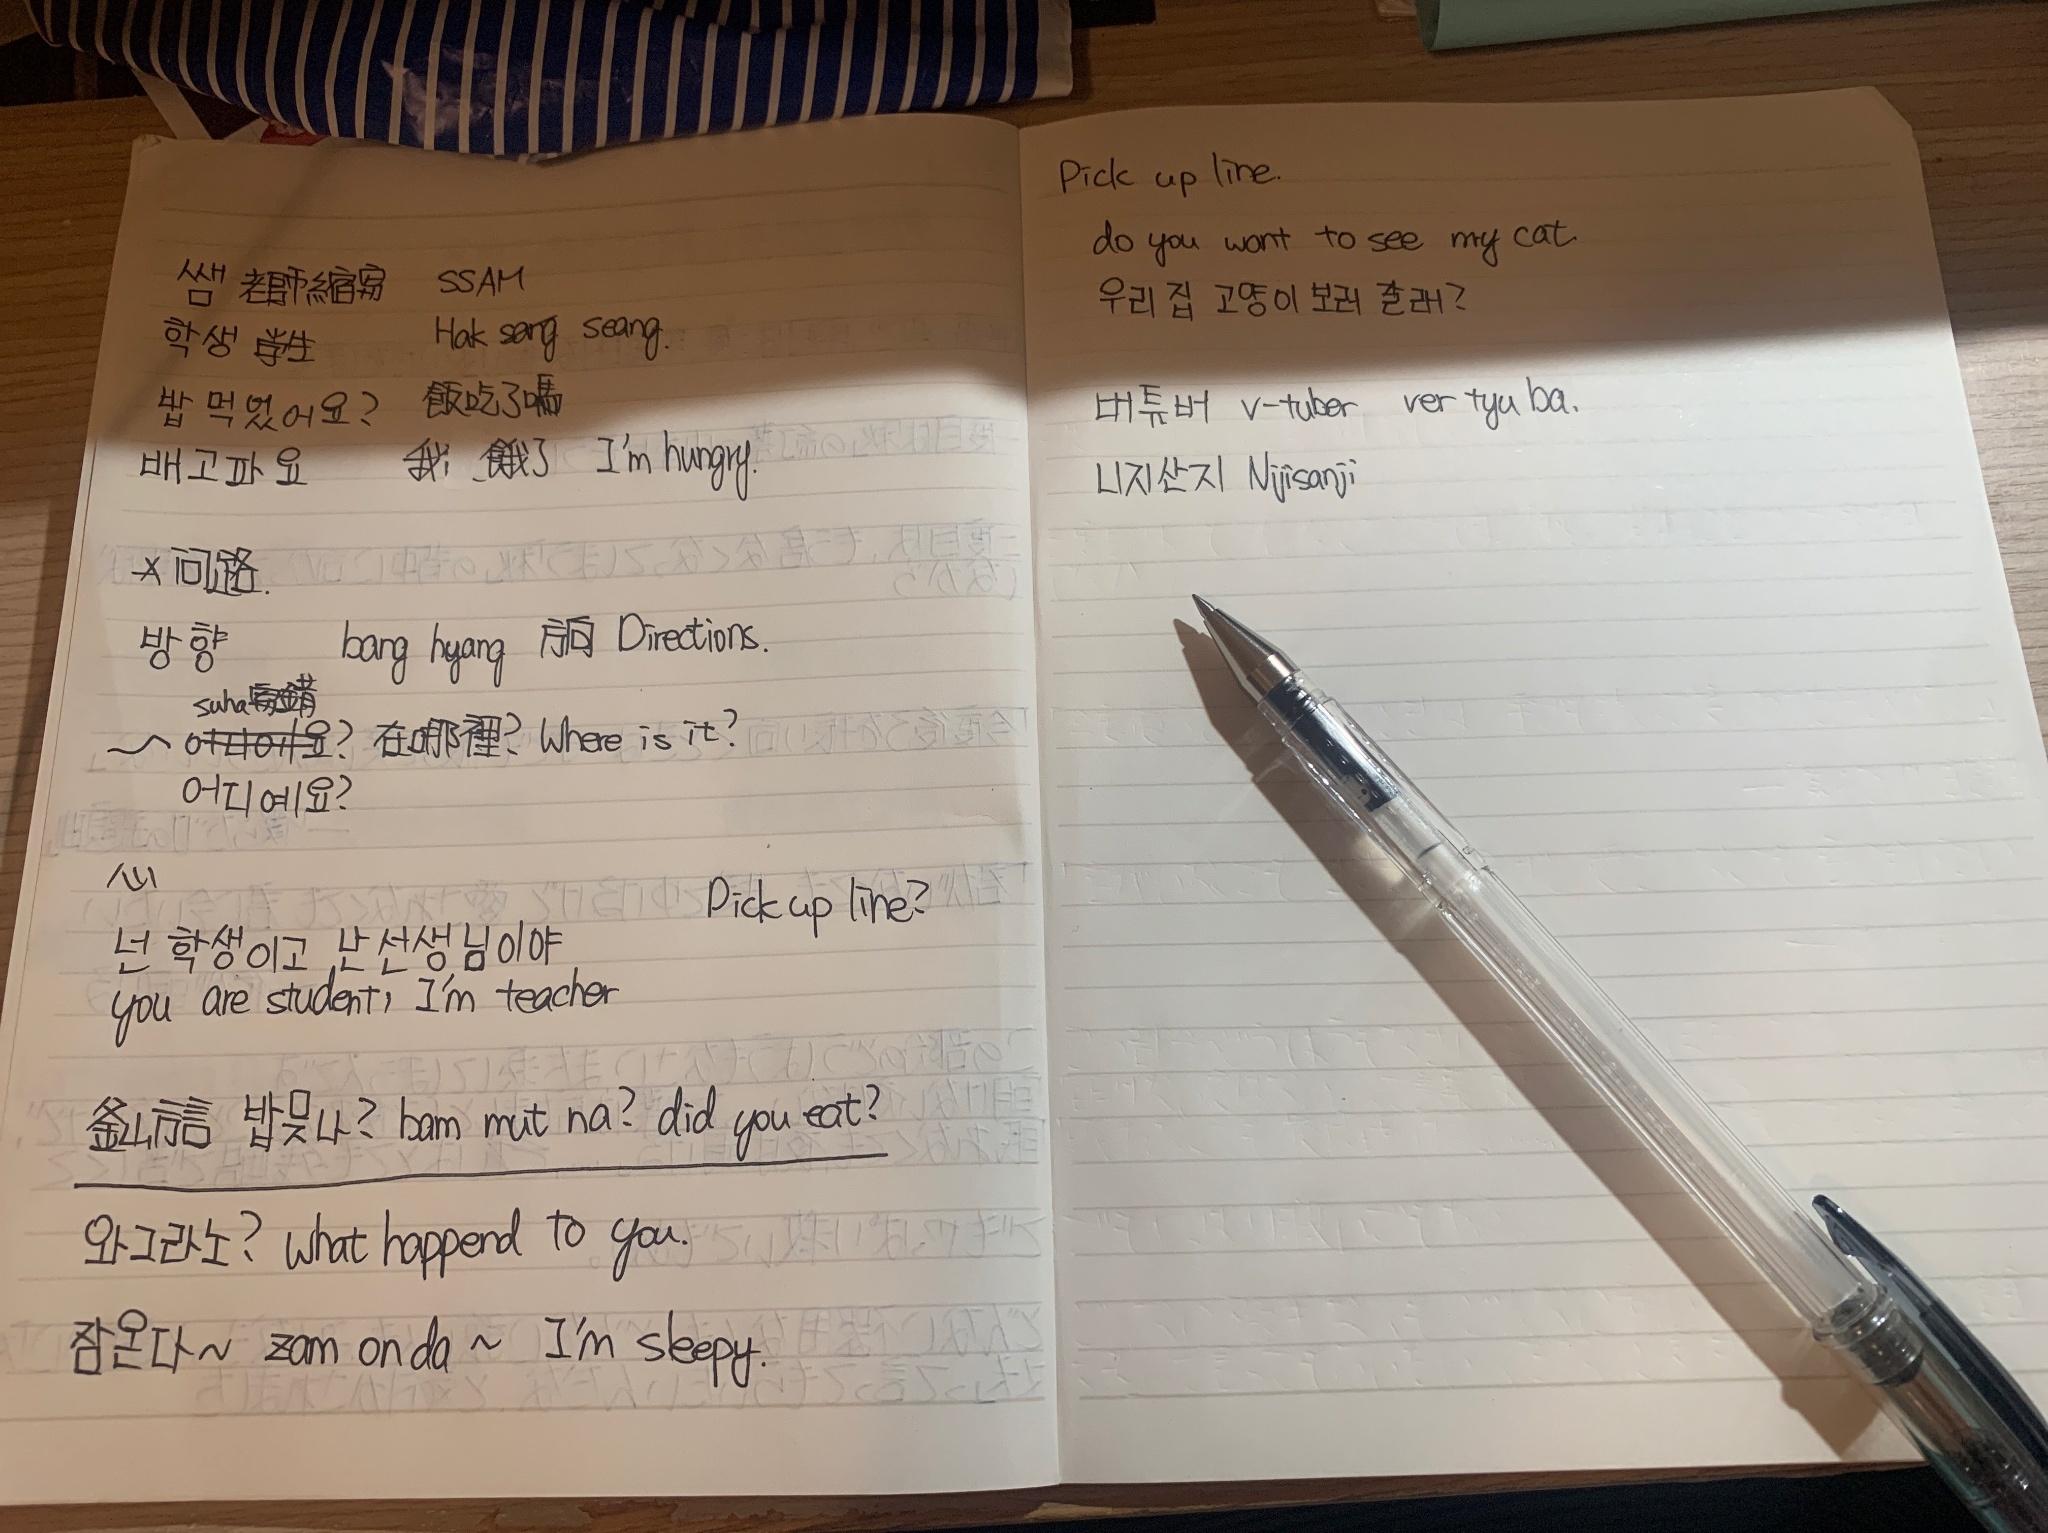 쌤 老師縮寫 SSAM
학생 学生 Hak sang seang.
밥 먹었어요? 飯吃了嗎
배고파요 我 餓了 I'm hungry.
问路.
방향 bang hyang 方向 Directions.
suha寫錯
어디예요? 在哪裡? Where is it?
어디예요?
넌 학생이고 난 선생님이야 Pick up line?
you are student, I'm teacher
釜山方言 밥뭇나? bam mut na? did you eat?
와그라노? what happend to you.
잠온다~ zam on da ~ I'm sleepy.
Pick up line.
do you want to see my cat.
우리 집 고양이 보러 갈래?
버튜버 v-tuber ver tyu ba.
니지산지 Nijisanji